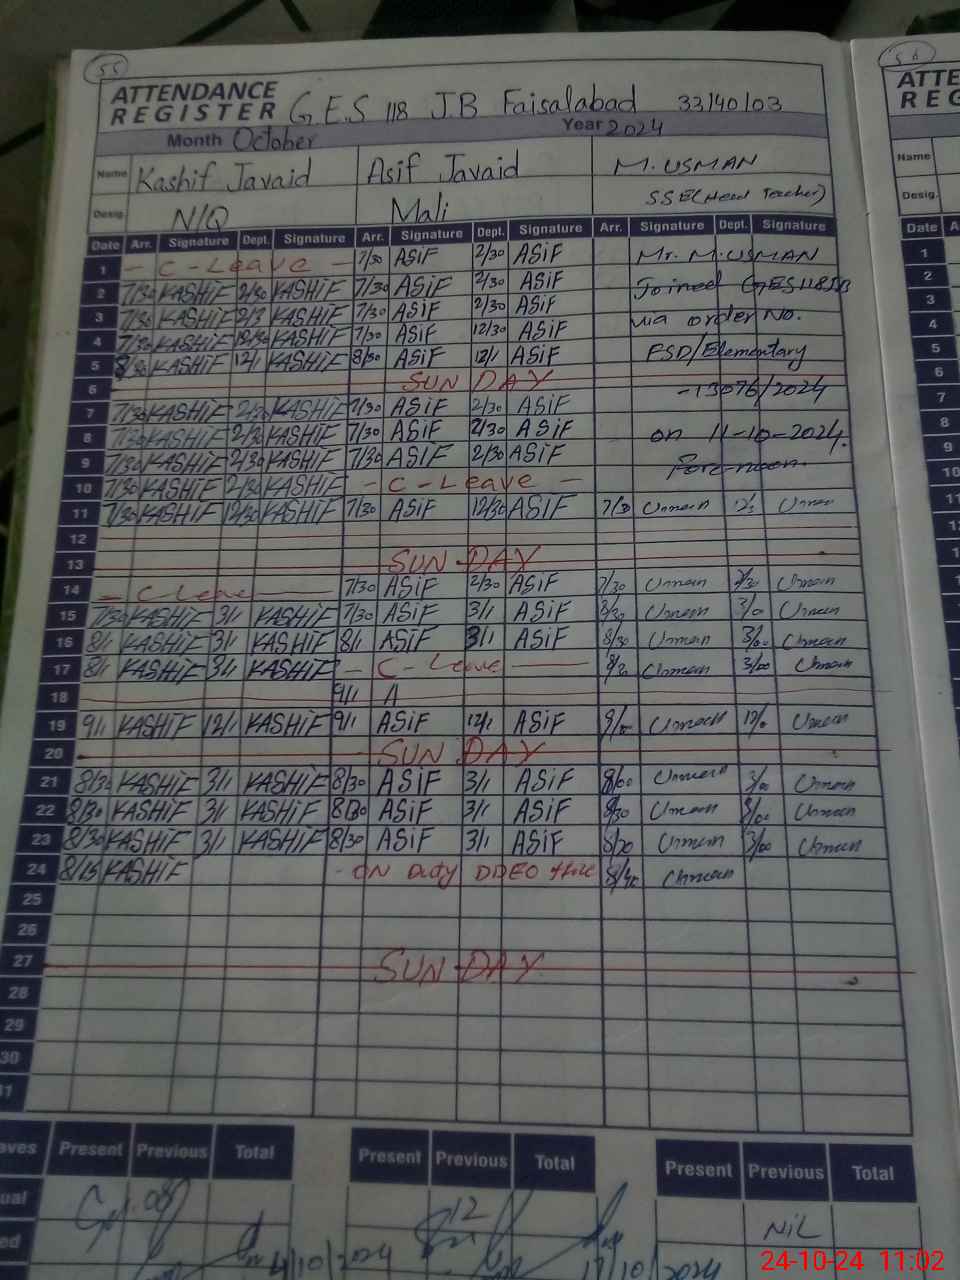 55
56
ATTENDANCE
REGISTER G.E.S 118 J.B Faisalabad 33140103
Month October Year 2024
Name Kashif Javaid Asif Javaid M. USMAN
Desig. N/Q Mali SSE(Head Teacher)
Date Arr. Signature Dept. Signature Arr. Signature Dept. Signature Arr. Signature Dept. Signature
1 - C-Leave - 7/30 ASiF 2/30 ASiF Mr. M.USMAN
2 7/30 KASHiF 2/30 KASHiF 7/30 ASiF 2/30 ASiF Joined GES118JB
3 7/30 KASHiF 2/3 KASHiF 7/30 ASiF 2/30 ASiF via order No.
4 7/30 KASHiF 12/30 KASHiF 7/30 ASiF 12/30 ASiF
5 8/30 KASHiF 12/1 KASHiF 8/30 ASiF 12/1 ASiF FSD/Elementary
6 SUN DAY
-13076/2024
7 7/30 KASHiF 2/30 KASHiF 7/30 ASiF 2/30 ASiF
8 7/30 KASHiF 2/30 KASHiF 7/30 ASiF 2/30 ASiF on 11-10-2024.
9 7/30 KASHiF 2/30 KASHiF 7/30 ASiF 2/30 ASiF Fore-noon.
10 7/30 KASHiF 2/30 KASHiF - C-Leave -
11 7/30 KASHiF 12/30 KASHiF 7/30 ASiF 12/30 ASiF 7/30
12
13 SUN DAY
14 - C Leave 7/30 ASiF 2/30 ASiF 7/30
15 7/30 KASHiF 3/1 KASHiF 7/30 ASiF 3/1 ASiF
16 8/1 KASHiF 3/1 KASHiF 8/1 ASiF 3/1 ASiF 8/30 3/00
17 8/1 KASHiF 3/1 KASHiF - C-Leave 3/00
18 9/1 A
19 9/1 KASHiF 12/1 KASHiF 9/1 ASiF 12/1 ASiF 9/00
20 SUN DAY
21 8/30 KASHiF 3/1 KASHiF 8/30 ASiF 3/1 ASiF 8/00 3/00
22 8/30 KASHiF 3/1 KASHiF 8/30 ASiF 3/1 ASiF 8/30 3/00
23 8/30 KASHiF 3/1 KASHiF 8/30 ASiF 3/1 ASiF 3/00
24 8/15 KASHiF - ON Duty DDEO
25
26
27 SUN DAY
28
29
30
Present Previous Total Present Previous Total Present Previous Total
08 12
NiL
/10/2024 /10/2024
24-10-24 11:02